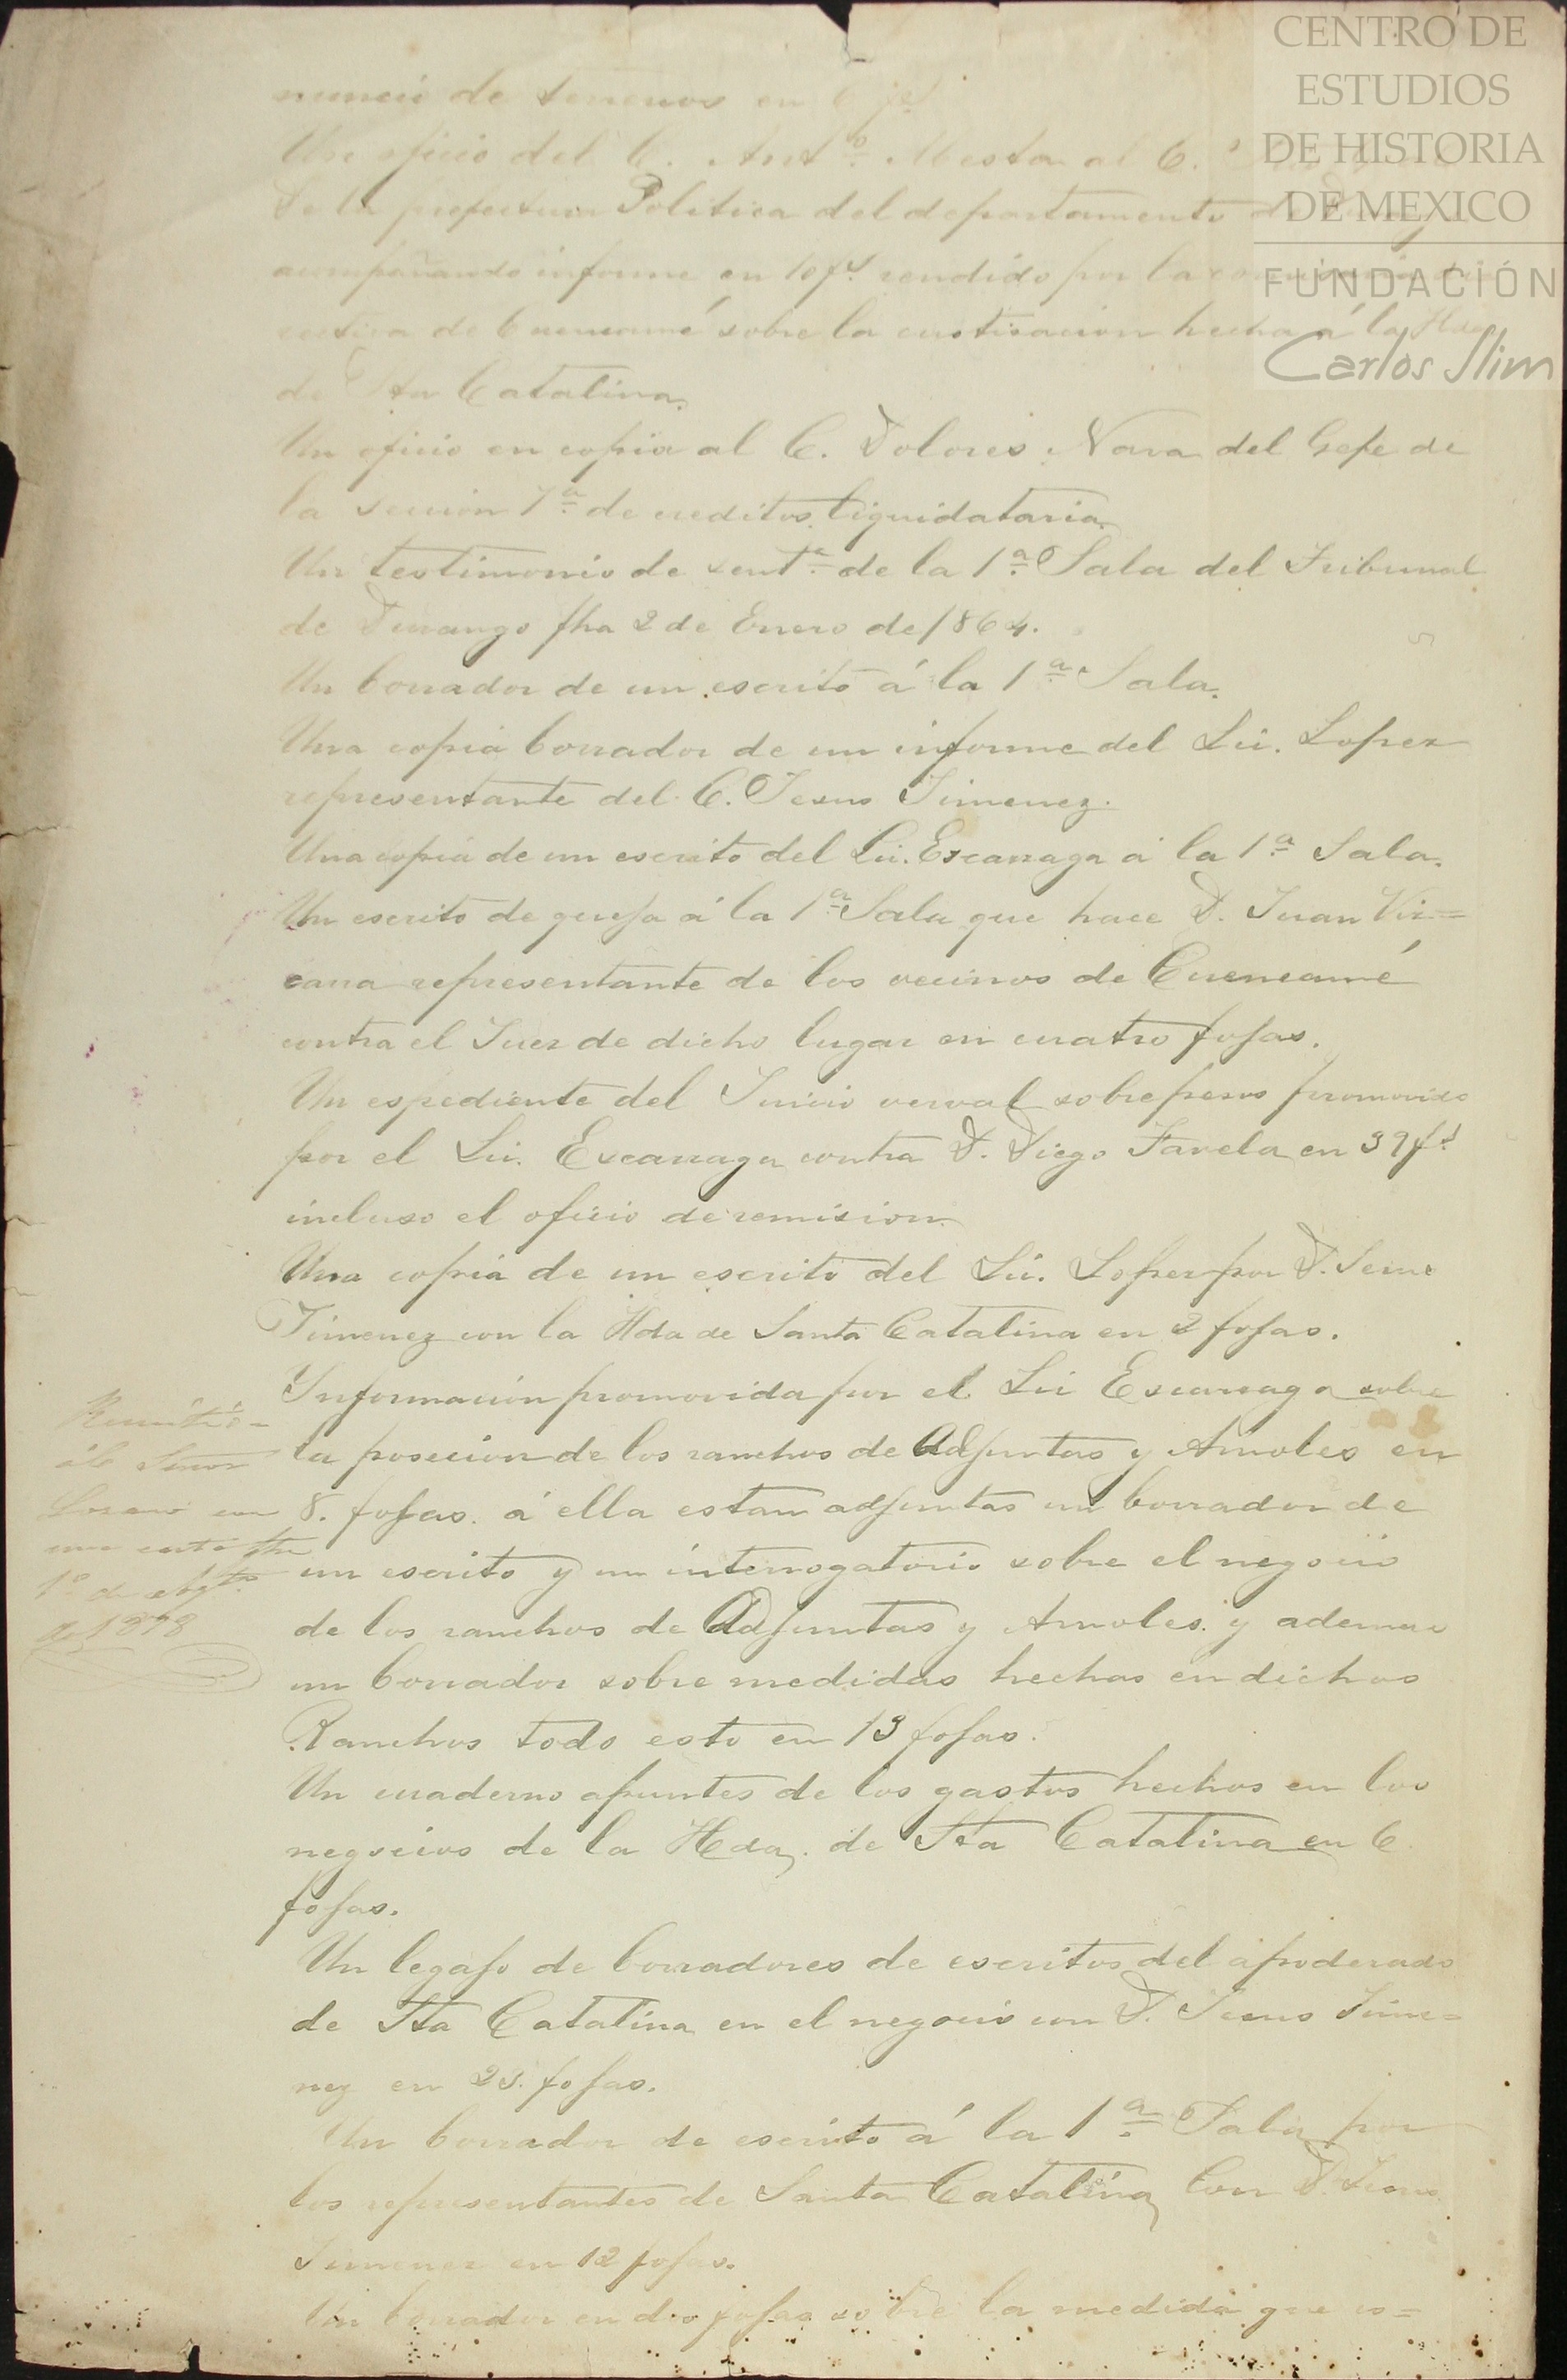 CENTRO DE
ESTUDIOS
DE HISTORIA
DE MEXICO
FUNDACIÓN
Carlos Slim
nuncio de terrenos en 6 fs.
Un oficio del C. Antº. Mesta al C.
de la prefectura Politica del departamento de
acompañando informe en 10 fs. rendido por la
de Cuencamé sobre la hecha á la Hda
de Sta Catalina.
Un oficio en copia al C. Dolores Nava del Gefe de
la seccion 7ª de creditos liquidataria.
Un testimonio de sentª. de la 1ª. Sala del Tribunal
de Durango fha 2 de Enero de 1864.
Un borrador de un escrito á la 1ª Sala.
Una copia borrador de un informe del Lic. Lopez
representante del C. Jesus Jimenez.
Una copia de un escrito del Lic. Escarzaga á la 1ª Sala.
Un escrito de queja á la 1ª Sala que hace D. Juan Viz=
carra representante de los vecinos de Cuencamé
contra el Juez de dicho lugar en cuatro fojas.
Un espediente del Juicio verval sobre pesos promovido
por el Lic. Escarzaga contra D. Diego Favela en 39 fs.
incluso el oficio de remision.
Una copia de un escrito del Lic. Lopez por D. Jesus
Jimenez con la Hda de Santa Catalina en 2 fojas.
Informacion promovida por el Lic Escarzaga sobre
la posecion de los ranchos de Adjuntas y Amoles en
8. fojas. á ella estan adjuntas un borrador de
un escrito y un interrogatorio sobre el negocio
de los ranchos de Adjuntas y Amoles. y ademas
un borrador sobre medidas hechas en dichos
Ranchos todo esto en 13 fojas.
Remitió=
Señor
con
una carta fha
1º de Agto.
de 1878
Un cuaderno apuntes de los gastos hechos en los
negocios de la Hda. de Sta Catalina en 6
fojas.
Un legajo de borradores de escritos del apoderado
de Sta Catalina en el negocio con D. Jesus Jime=
nez en 23. fojas.
Un borrador de escrito á la 1ª Sala por
los representantes de Santa Catalina con D. Jesus
Jimenez en 12 fojas.
Un borrador en dos fojas sobre la medida que co=